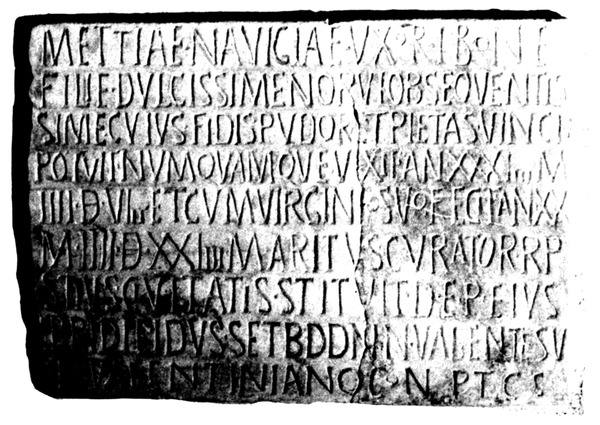 METTIAE·NAVIGIAE·VXORI BONE
FILIE·DVLCISSIMENORVIOBSEQVENTIS
SIMECVIVSFIDISPVDORETPIETASVINCI
NVMQVAMQVEVIXITANXXXIIIIM
IIIIĐVIIIIETCVMVIRGINIOSVOFECITANXX
M·IIII·Đ·XXIIIIMARITVSCVRATORRP
STITVITDEPEIVS
IDVSSETBDDNN·VALENTESV
VALENTINIANOC·N PTCS